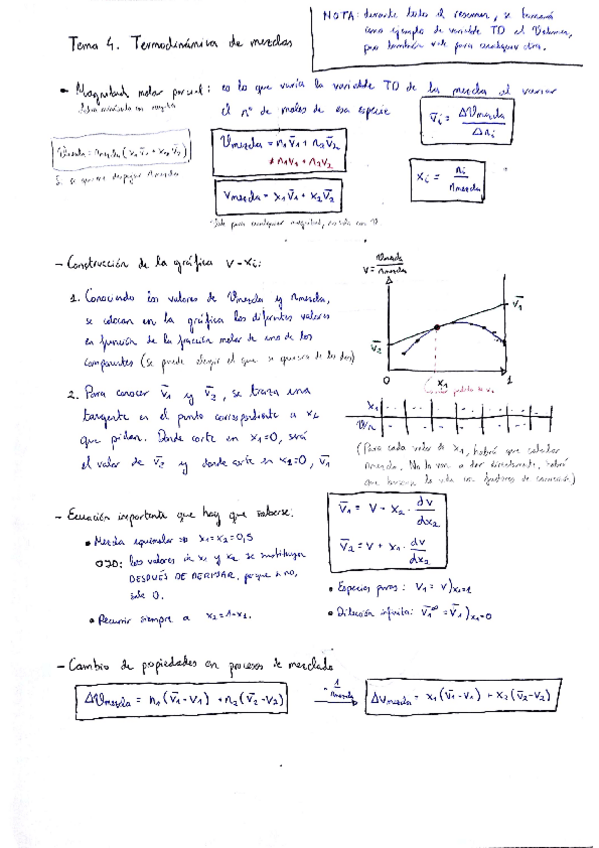 NOTA: durante todo el resumen, se tomará
como ejemplo de variable TD el Volumen,
pero también vale para cualquier otra.
Tema 4. Termodinámica de mezclas
• Magnitud molar parcial: es lo que varía la variable TD de la mezcla al variar
el nº de moles de esa especie
V̄i = ΔVmezcla / Δni
Vmezcla = nmezcla (x1V̄1 + x2V̄2)
Si se quiere despejar nmezcla
Vmezcla = n1V̄1 + n2V̄2
≠ n1V1 + n2V2
xi = ni / nmezcla
vmezcla = x1V̄1 + x2V̄2
Vale para cualquier magnitud, no solo con V
- Construcción de la gráfica V-xi:
1. Conociendo los valores de Vmezcla y nmezcla,
se colocan en la gráfica los diferentes valores
en función de la fracción molar de uno de los
componentes (se puede elegir el que se quiera de los dos)
V = Vmezcla / nmezcla
V̄1
V̄2
0 x1 1
2. Para conocer V̄1 y V̄2, se traza una
tangente en el punto correspondiente a x2
que pidan. Donde corte en x1=0, será
el valor de V̄2 y donde corte en x2=0, V̄1
x1
(Para cada valor de x1, habrá que calcular
nmezcla. No la van a dar directamente, habrá
que buscarse la vida con factores de conversión)
- Ecuación importante que hay que saberse:
V̄1 = V - x2 · dv/dx2
V̄2 = V + x1 · dv/dx2
• Mezcla equimolar ⇒ x1=x2=0,5
OJO: los valores de x1 y x2 se sustituyen
DESPUÉS DE DERIVAR, porque si no,
sale 0.
• Recurrir siempre a x2=1-x1.
• Especies puras: V1 = V)x1=1
• Dilución infinita: V̄1∞ = V̄1)x1=0
- Cambio de propiedades en procesos de mezclado
ΔVmezcla = n1(V̄1-V1) + n2(V̄2-V2)
· 1/nmezcla
Δvmezcla = x1(V̄1-V1) + x2(V̄2-V2)